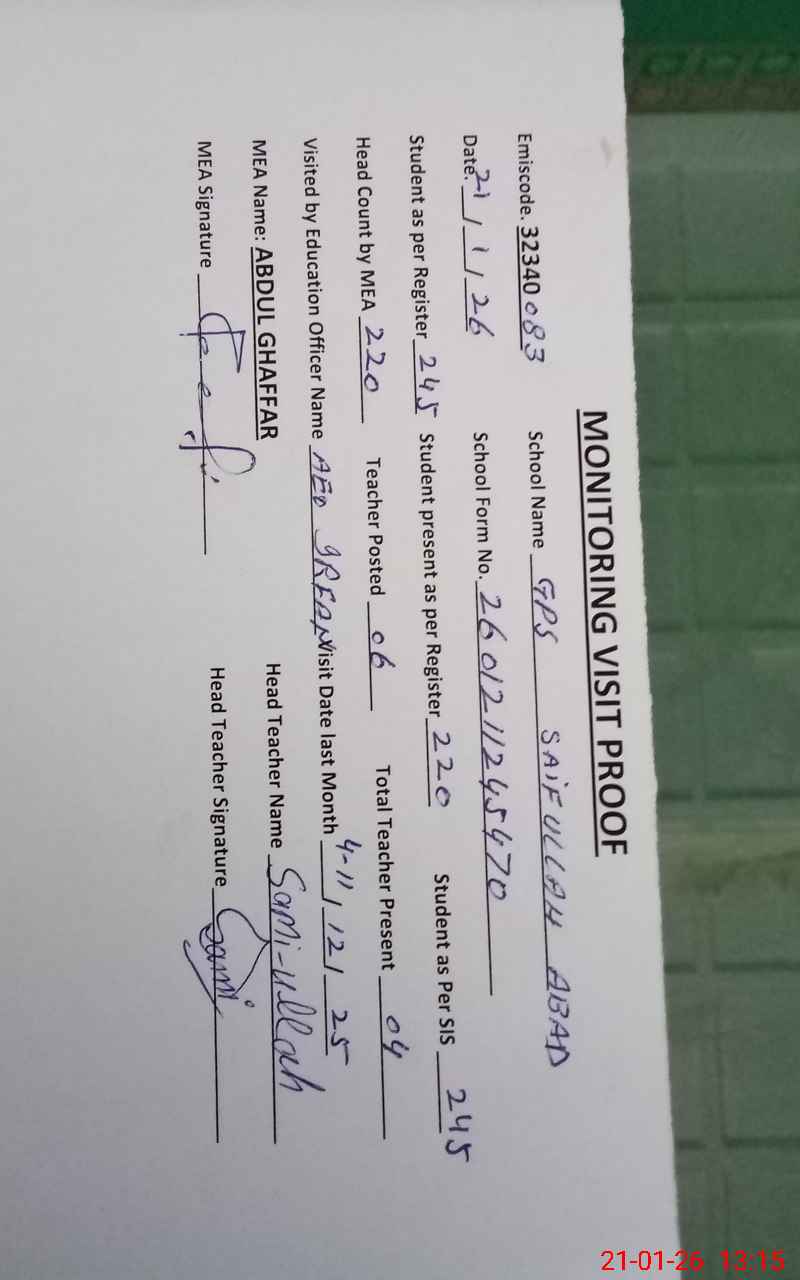 MONITORING VISIT PROOF
Emiscode. 32340083 School Name GPS SAIFULLAH ABAD
Date. 21/1/26 School Form No. 2601211245470
Student as per Register 245 Student present as per Register 220 Student as Per SIS 245
Head Count by MEA 220 Teacher Posted 06 Total Teacher Present 04
Visited by Education Officer Name AEO IRFAN Visit Date last Month 4-11/12/25
MEA Name: ABDUL GHAFFAR Head Teacher Name Sami-ullah
MEA Signature Head Teacher Signature Sami
21-01-26 13:15